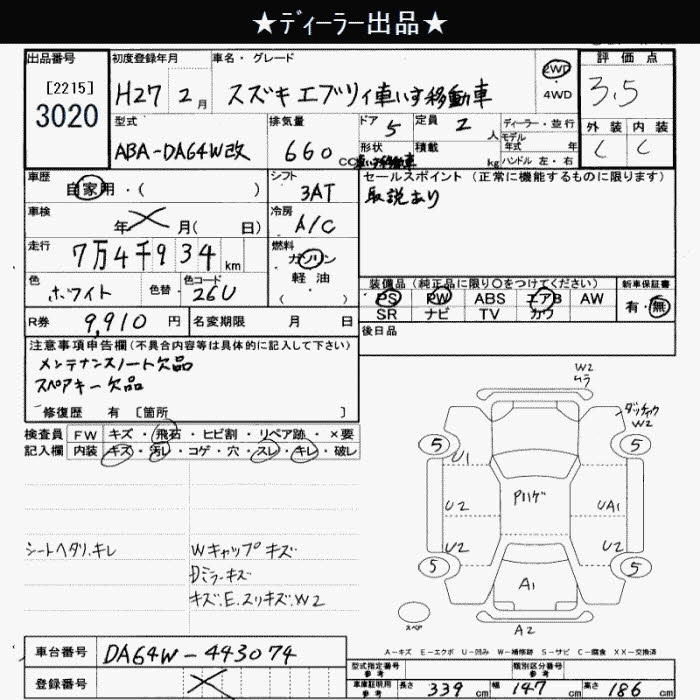 ★ディーラー出品★
出品番号
[2215]
3020
初度登録年月
H27 2月
車名・グレード
スズキ エブリィ車いす移動車
2WD
4WD
評価点
3.5
外装 内装
C C
型式
ABA-DA64W改
排気量
660 cc
ドア 5
形状
車いす移動車
定員 2 人
積載 kg
ディーラー・並行
モデル年式 年
ハンドル 左・右
車歴
自家用・( )
シフト
3AT
車検
年 月( 日)
冷房
A/C
走行
7万4千934km
燃料
ガソリン
軽油
( )
色
ホワイト
色替
色コード
26U
セールスポイント (正常に機能するものに限ります)
取説あり
装備品(純正品に限り○をつけてください)
PS PW ABS エアB AW
SR ナビ TV カワ
新車保証書
有・無
R券 9,910円
名変期限 月 日
後日品
注意事項申告欄(不具合内容等は具体的に記入して下さい)
メンテナンスノート欠品
スペアキー欠品
修復歴 有 [箇所 ]
検査員 FW キズ・飛石・ヒビ割・リペア跡・×要
記入欄 内装 キズ・汚レ・コゲ・穴・スレ・キレ・破レ
シートヘタリ.キレ
Wキャップキズ
Dミラーキズ
キズ.E.スリキズ.W2
W2
ムラ
W2
5 5
U1
Pハゲ
U2 UA1
U2 U2
5 5
A1
スペア
A2
A-キズ E-エクボ U-凹み W-補修跡 S-サビ C-腐食 XX-交換済
車台番号 DA64W-443074
登録番号
型式指定番号 参考
類別区分番号 参考
車庫証明用 参考 長さ 339cm 幅 147cm 高さ 186cm